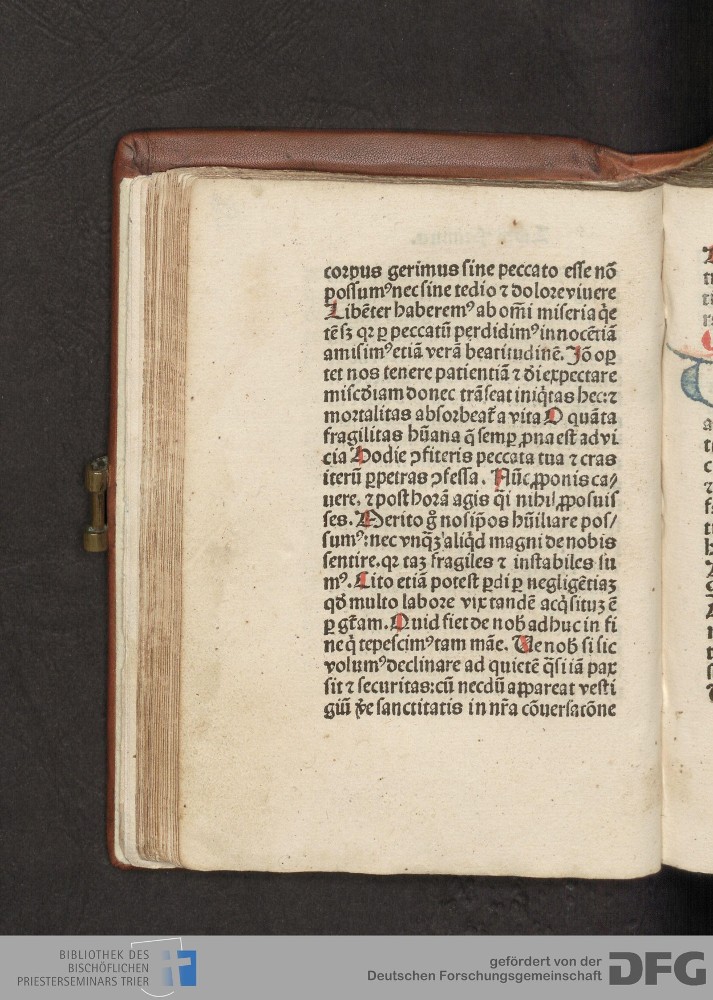 corpus gerimus sine peccato esse nō
possumꝰ nec sine tedio ⁊ dolore viuere
Libēter haberemꝰ ab om̄i miseria q̇e
tē sꝫ qꝛ ꝑ peccatū perdidimꝰ innocētiā
amisimꝰ etiā verā beatitudinē. Jō opꝫ
tet nos tenere patientiā ⁊ d̄i expectare
misc̄diam donec trāseat iniq̇tas hec: ⁊
mortalitas absorbeat̄ a vita O quāta
fragilitas hūana q̄ semꝑ ꝓna est ad vi
cia Hodie ꝯfiteris peccata tua ⁊ cras
iterū ꝑpetras ꝯfessa. Nūc ꝓponis ca/
uere, ⁊ post horā agis q̄i nihil ꝓposuis
ses. Merito gͦ nos ip̄os hūiliare pos/
sumꝰ: nec vnq̄ꝫ aliq̇d magni de nobis
sentire. qꝛ taꝫ fragiles ⁊ instabiles su
mꝰ. Cito etiā potest ꝑdi ꝑ negligētiaꝫ
qḋ multo labore vix tandē acq̇situꝫ ē
ꝑ gr̄am. Quid fiet de nob̄ adhuc in fi
ne q̇ tepescimꝰ tam māe. Ue nob̄ si sic
volumꝰ declinare ad quietē q̄si iā pax
sit ⁊ securitas: cū necdū appareat vesti
giū v̄e sanctitatis in nr̄a cōuersatōne
BIBLIOTHEK DES
BISCHÖFLICHEN
PRIESTERSEMINARS TRIER
gefördert von der
Deutschen Forschungsgemeinschaft
DFG